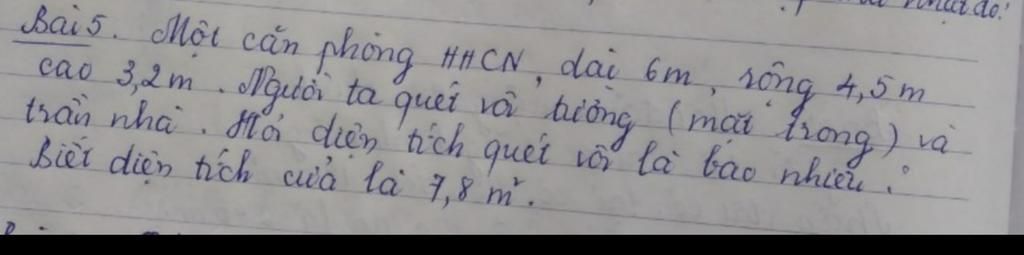 Bài 5. Một căn phòng HHCN, dài 6m, rộng 4,5m
cao 3,2m. Người ta quét vôi tường (mặt trong) và
trần nhà. Hỏi diện tích quét vôi là bao nhiêu?
Biết diện tích cửa là 7,8 m².